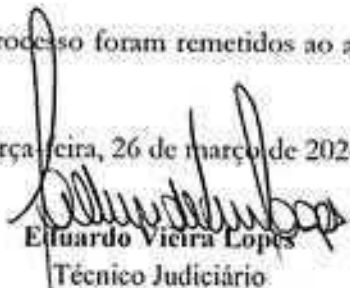 processo foram remetidos ao a
rça-feira, 26 de março de 202
Eduardo Vieira Lopes
Técnico Judiciário